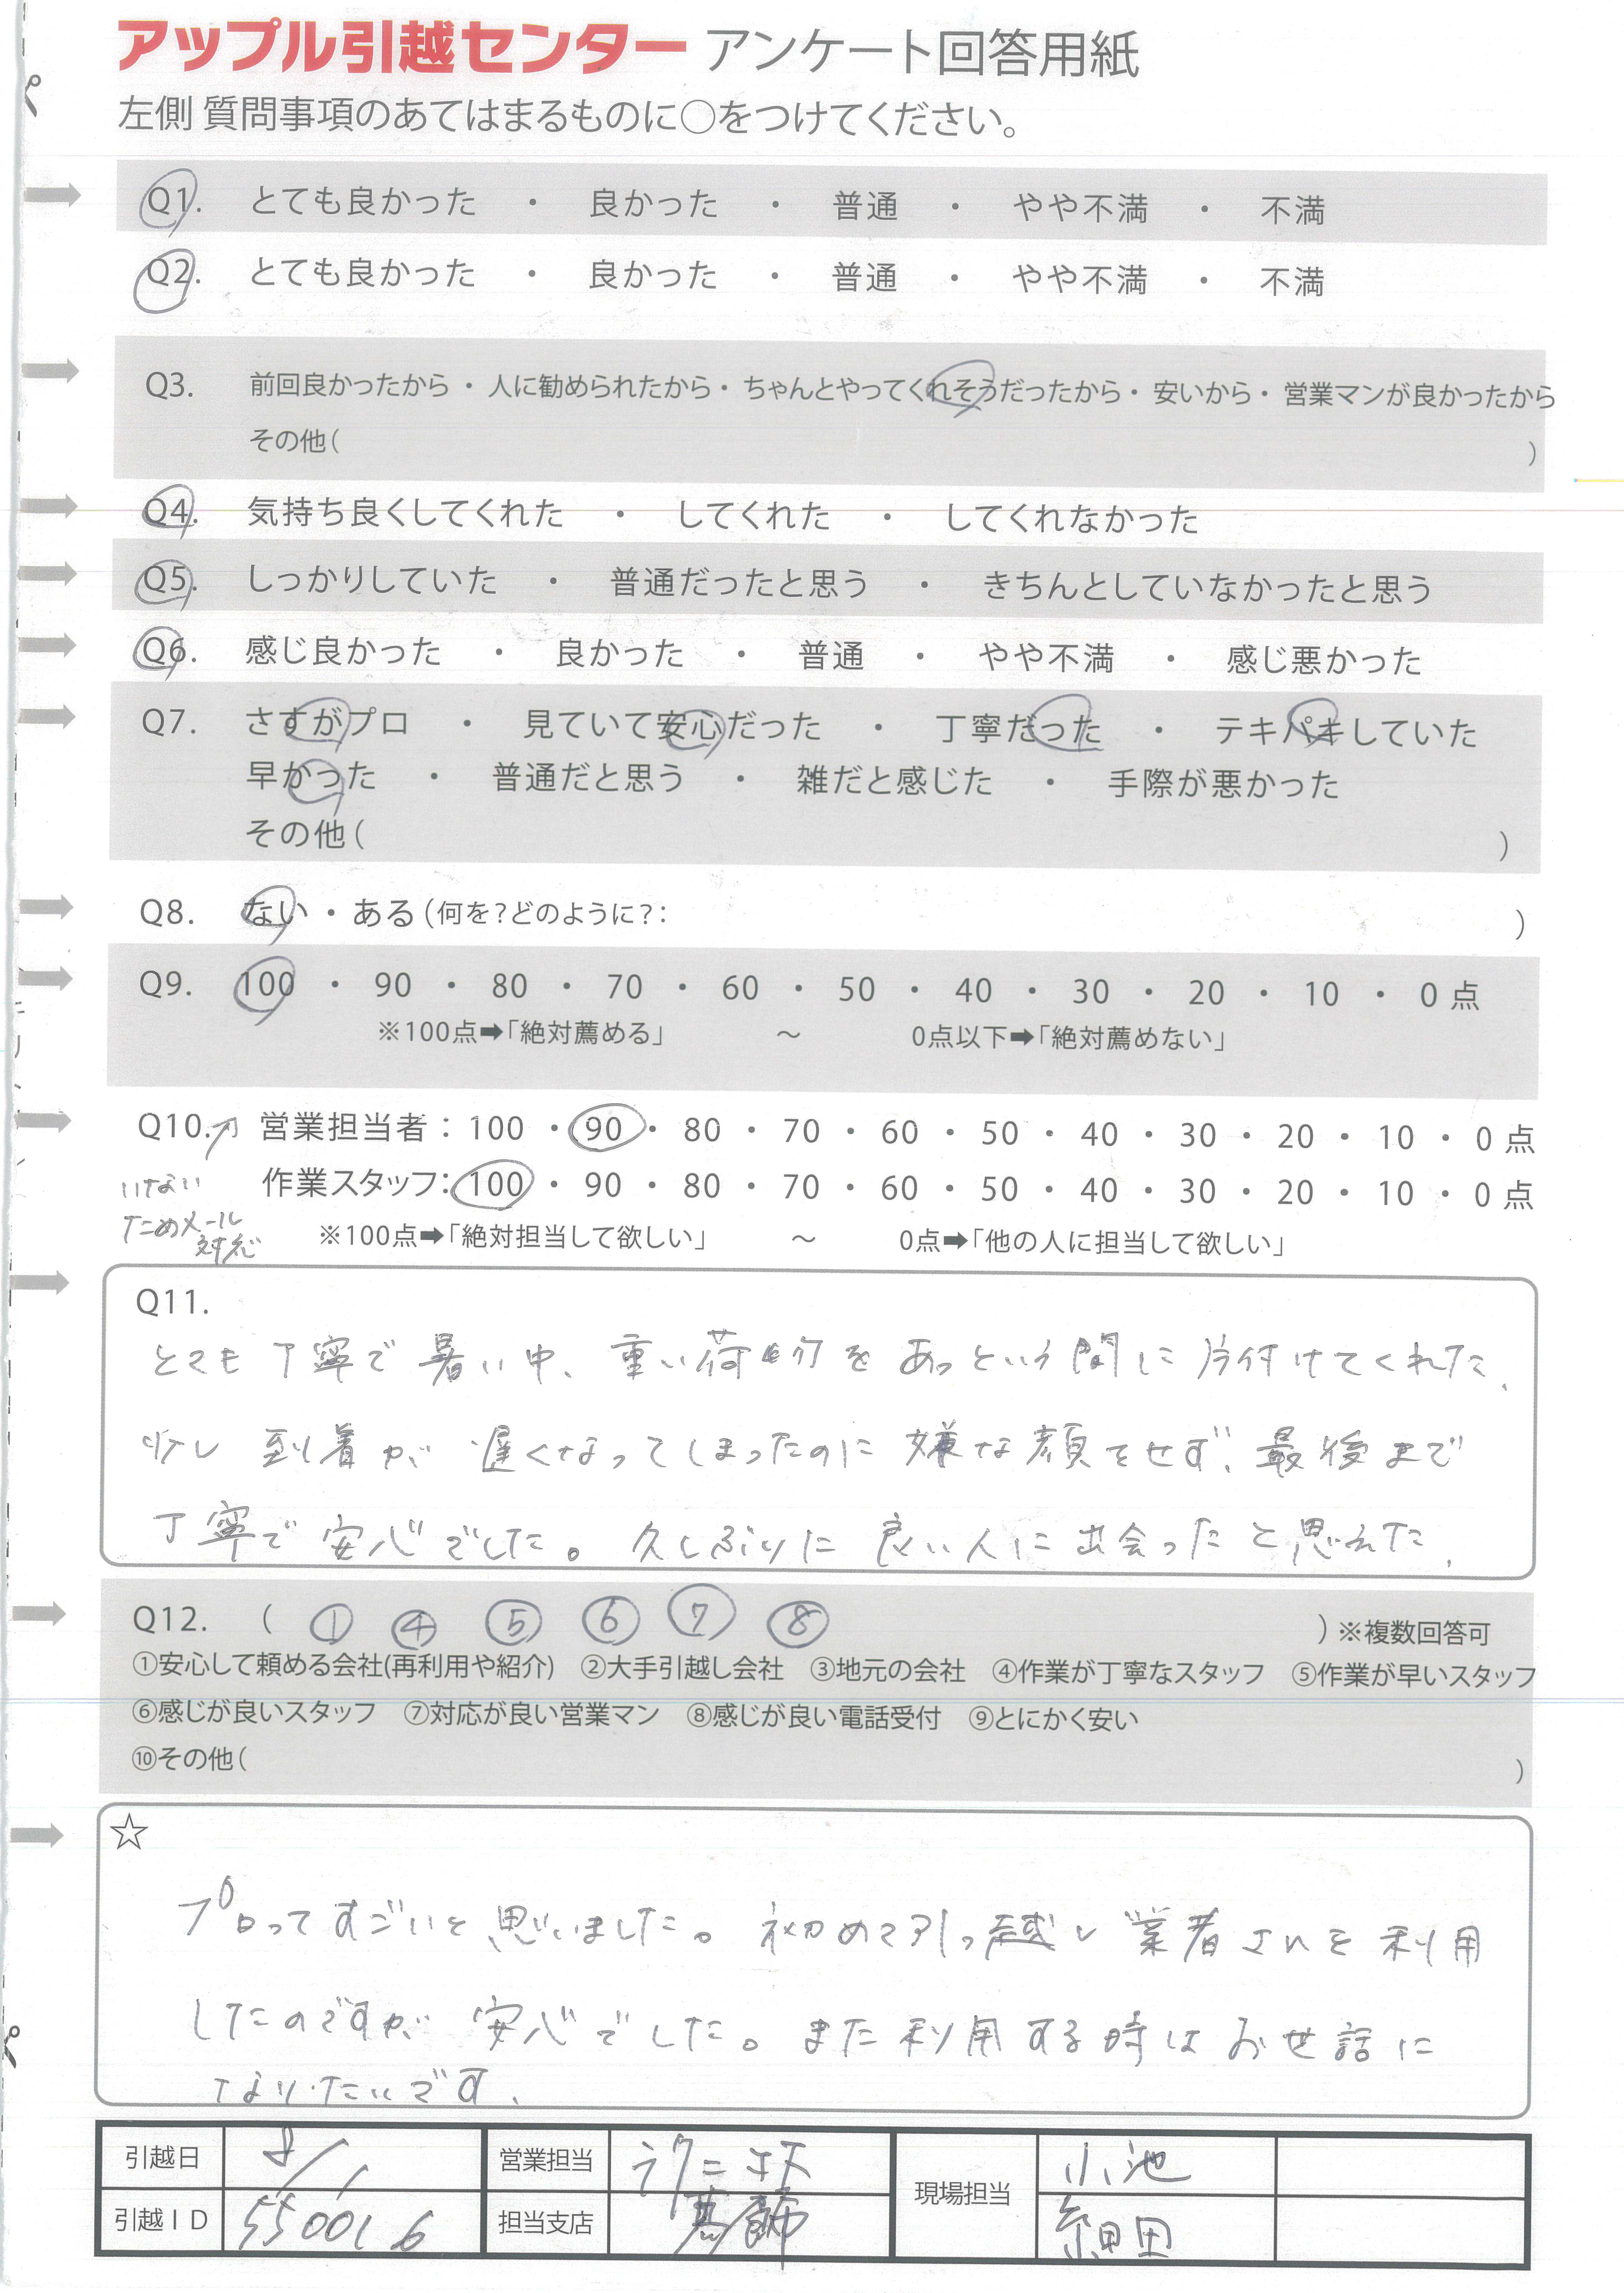 アップル引越センター アンケート回答用紙
左側 質問事項のあてはまるものに○をつけてください。
Q1. とても良かった ・ 良かった ・ 普通 ・ やや不満 ・ 不満
Q2. とても良かった ・ 良かった ・ 普通 ・ やや不満 ・ 不満
Q3. 前回良かったから ・ 人に勧められたから ・ ちゃんとやってくれそうだったから ・ 安いから ・ 営業マンが良かったから
その他( )
Q4. 気持ち良くしてくれた ・ してくれた ・ してくれなかった
Q5. しっかりしていた ・ 普通だったと思う ・ きちんとしていなかったと思う
Q6. 感じ良かった ・ 良かった ・ 普通 ・ やや不満 ・ 感じ悪かった
Q7. さすがプロ ・ 見ていて安心だった ・ 丁寧だった ・ テキパキしていた
早かった ・ 普通だと思う ・ 雑だと感じた ・ 手際が悪かった
その他( )
Q8. ない ・ ある(何を?どのように?: )
Q9. 100 ・ 90 ・ 80 ・ 70 ・ 60 ・ 50 ・ 40 ・ 30 ・ 20 ・ 10 ・ 0 点
※100点➡「絶対薦める」 ～ 0点以下➡「絶対薦めない」
Q10. 営業担当者：100 ・ 90 ・ 80 ・ 70 ・ 60 ・ 50 ・ 40 ・ 30 ・ 20 ・ 10 ・ 0 点
作業スタッフ：100 ・ 90 ・ 80 ・ 70 ・ 60 ・ 50 ・ 40 ・ 30 ・ 20 ・ 10 ・ 0 点
いない
ためメール
対応
※100点➡「絶対担当して欲しい」 ～ 0点➡「他の人に担当して欲しい」
Q11.
とても丁寧で暑い中、重い荷物をあっという間に片付けてくれた、
少し到着が遅くなってしまったのに嫌な顔をせず、最後まで
丁寧で安心でした。久しぶりに良い人に出会ったと思えた、
Q12. ( ① ④ ⑤ ⑥ ⑦ ⑧ ) ※複数回答可
①安心して頼める会社(再利用や紹介) ②大手引越し会社 ③地元の会社 ④作業が丁寧なスタッフ ⑤作業が早いスタッフ
⑥感じが良いスタッフ ⑦対応が良い営業マン ⑧感じが良い電話受付 ⑨とにかく安い
⑩その他( )
☆
プロってすごいと思いました。初めて引っ越し業者さんを利用
したのですが、安心でした。また利用する時はお世話に
なりたいです、
引越日 8/1 営業担当 現場担当 小池
引越ＩＤ 550016 担当支店 葛飾 細田